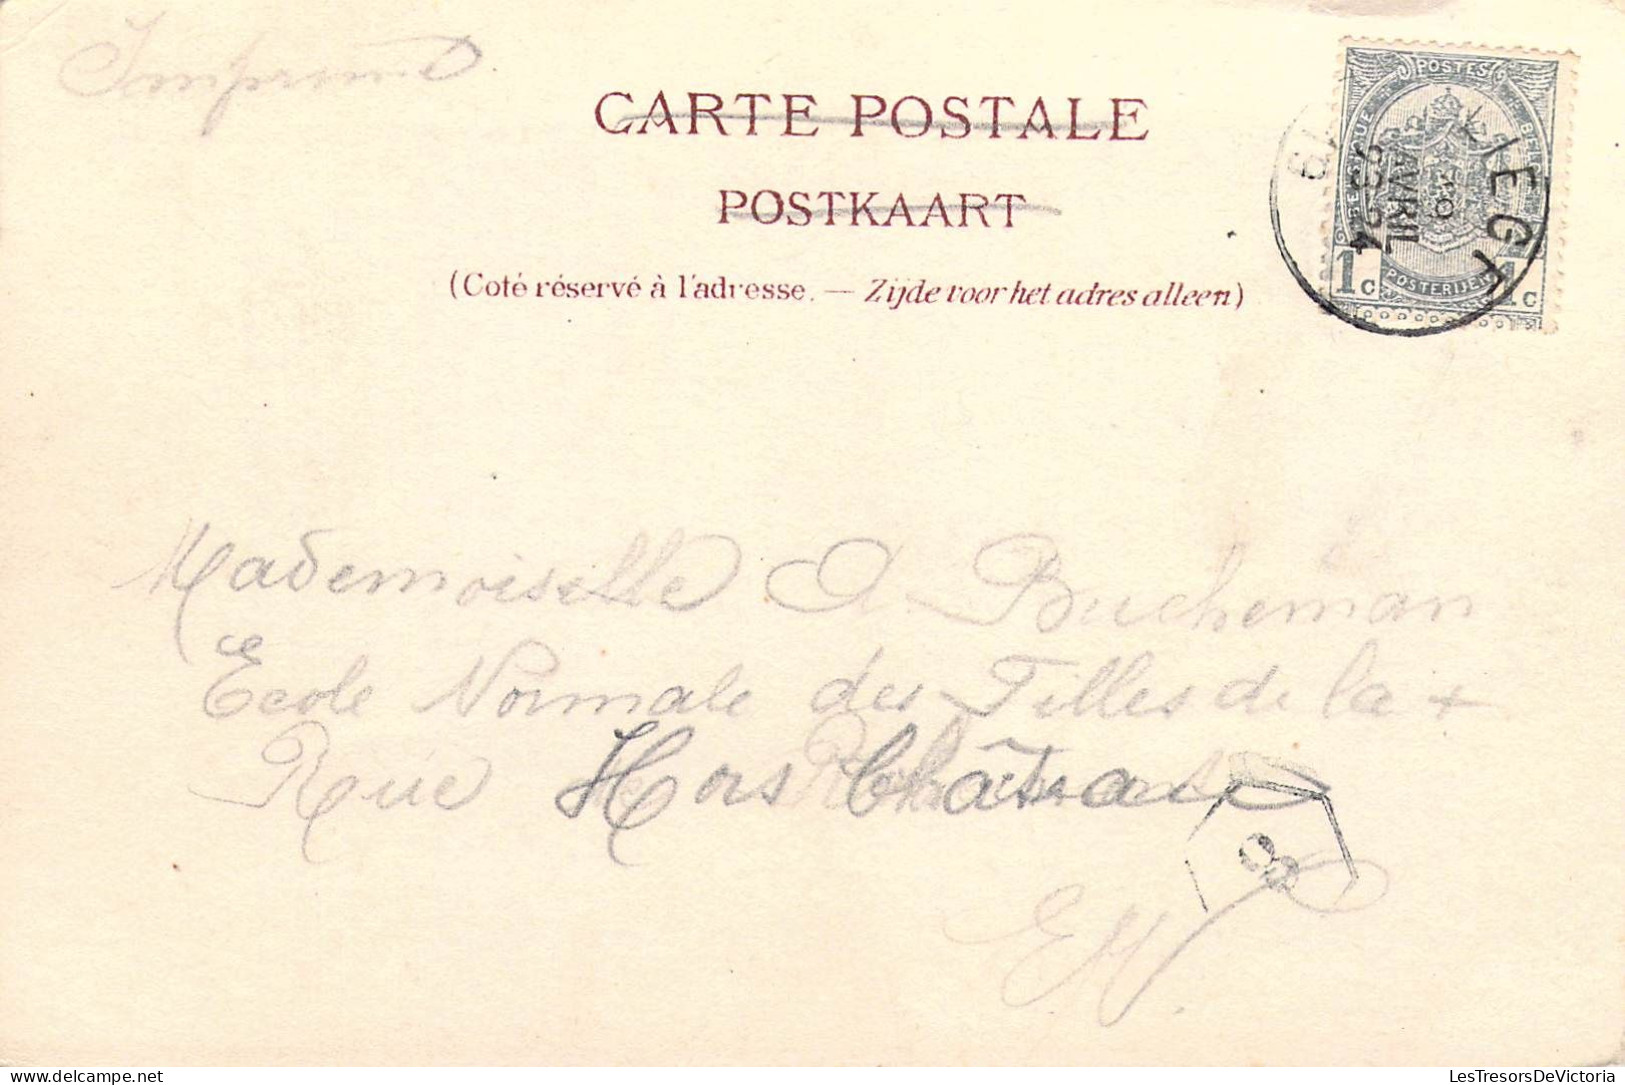 Imprimé
CARTE POSTALE
POSTKAART
(Coté réservé à l'adresse. — Zijde voor het adres alleen)
POSTES
BELGIQUE
BELGIË
POSTERIJEN
1c 1c
LIEGE
AVRIL
Mademoiselle A. Bucheman
Ecole Normale des Filles de la +
Rue Hors Château
8
EV.
LesTresorsDeVictoria